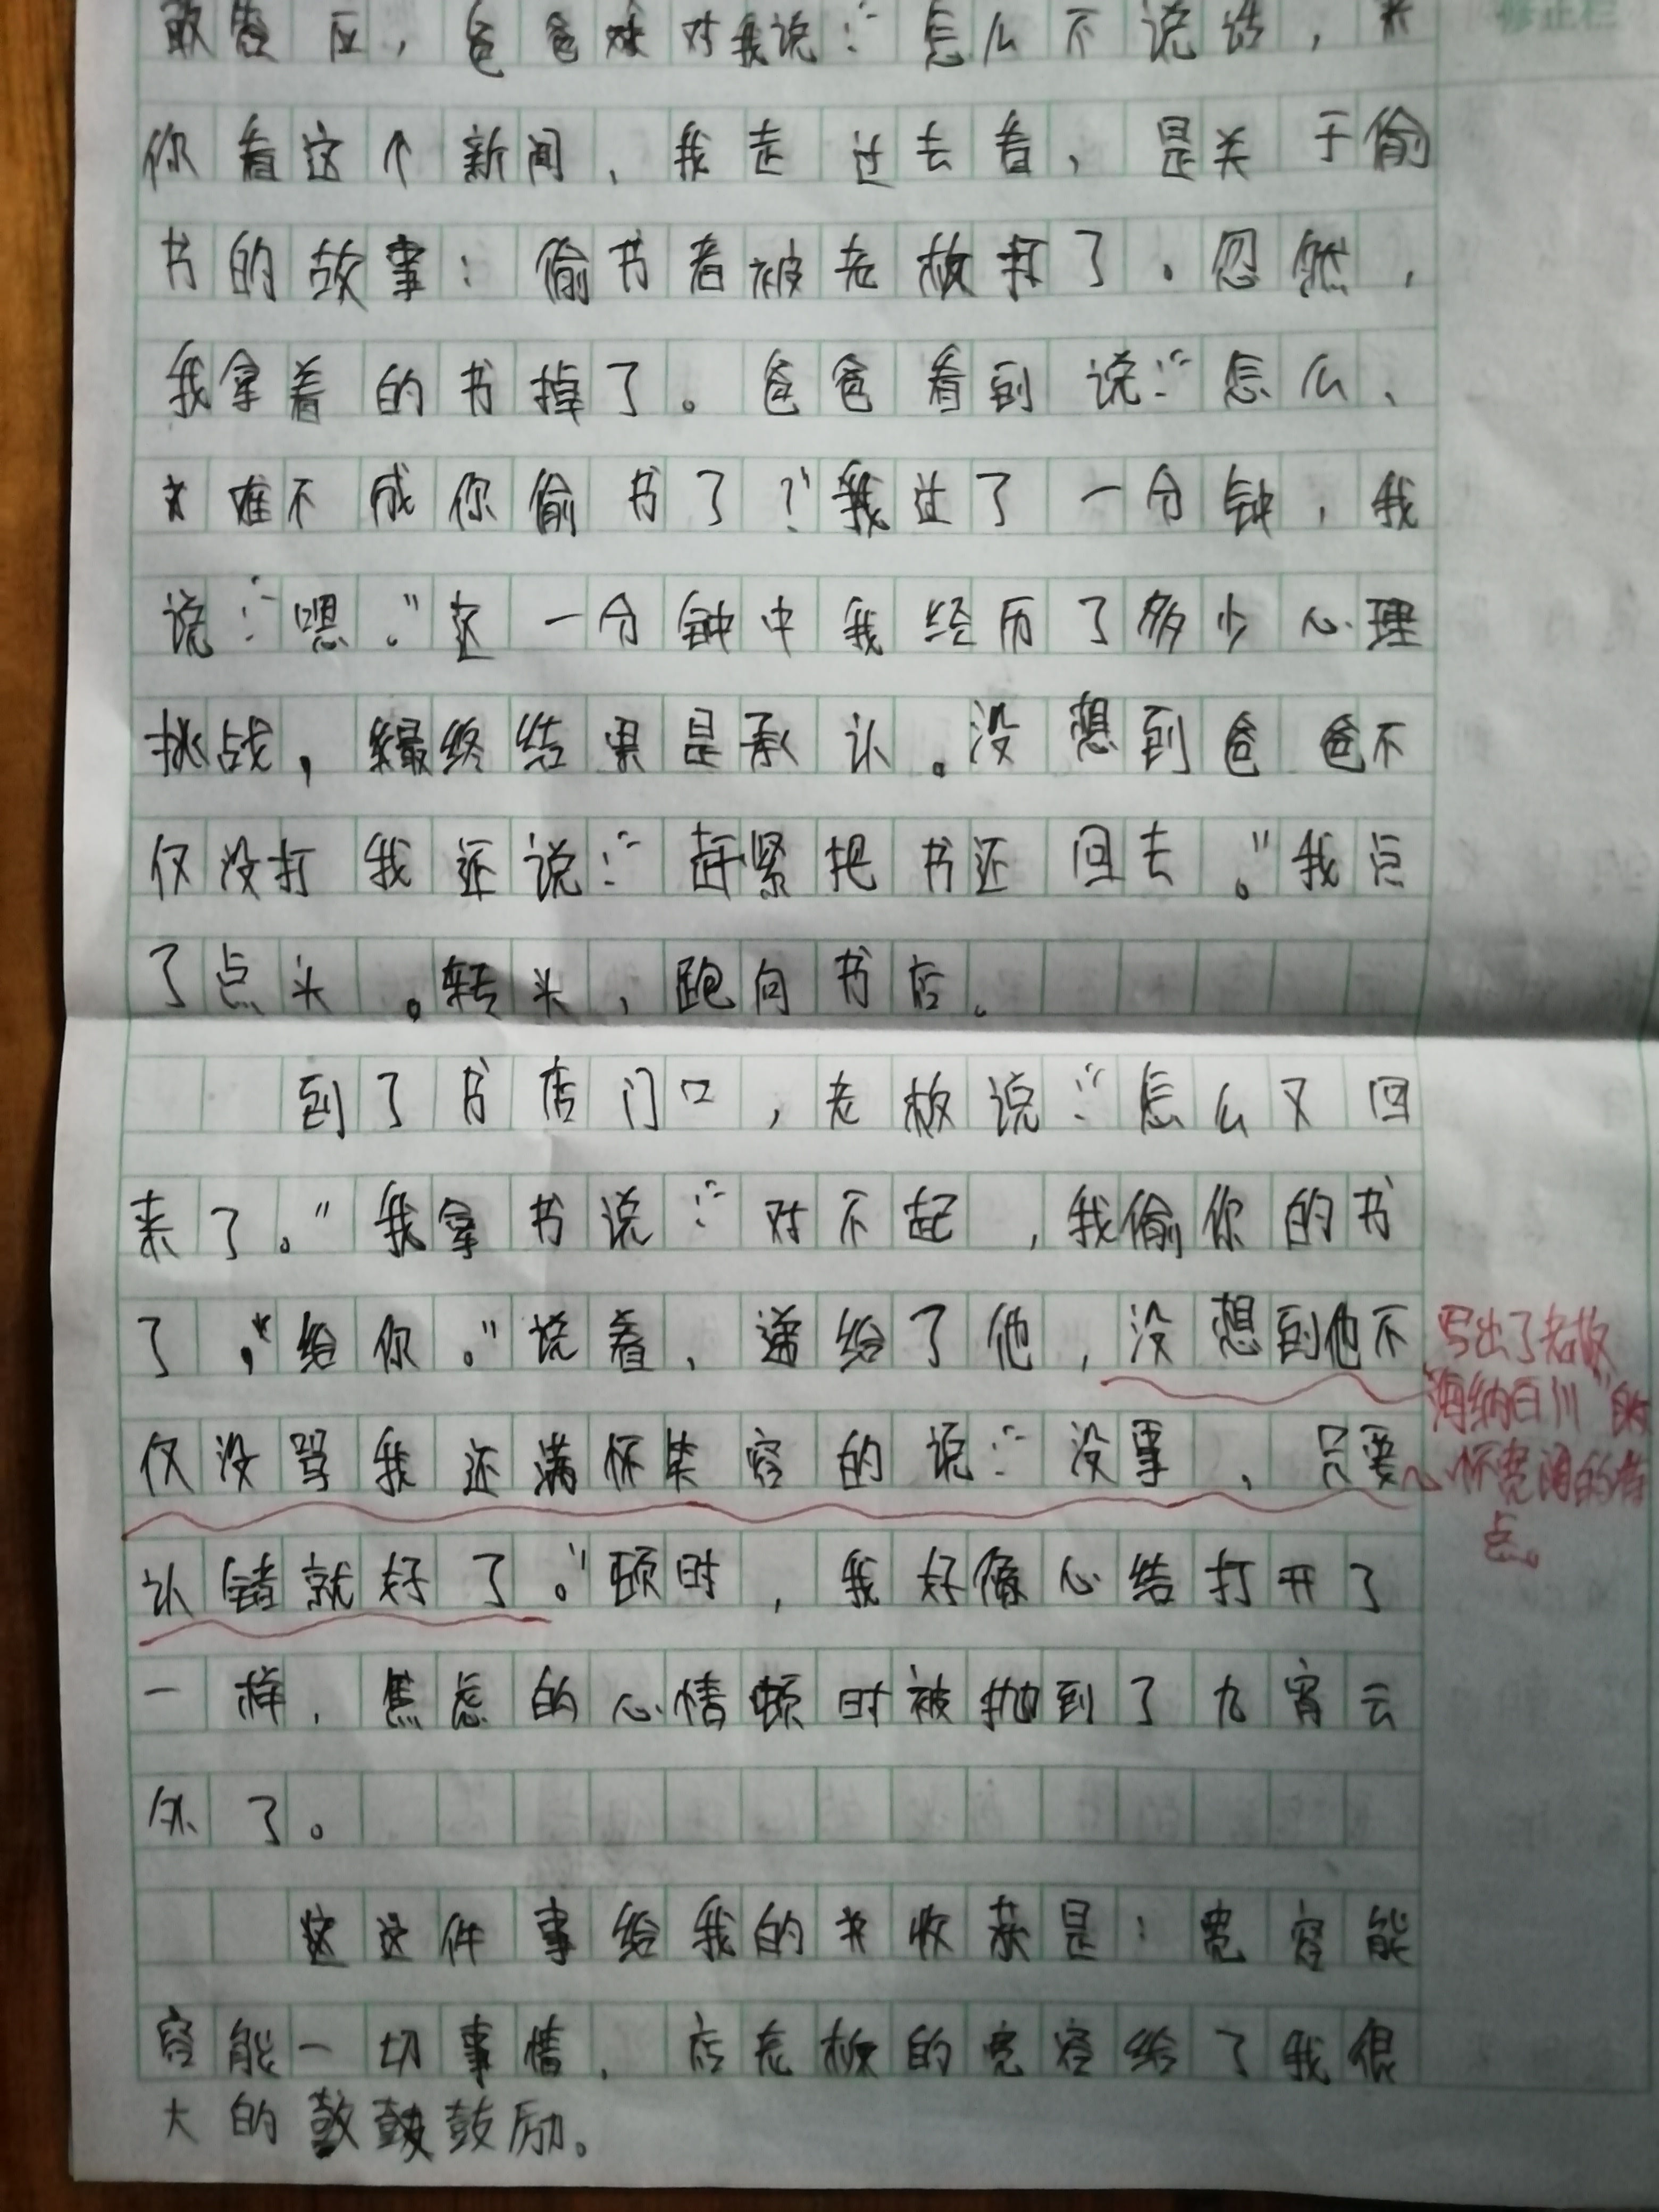 敢答应，爸爸对我说：“怎么不说话，来
修正栏
你看这个新闻，我走过去看，是关于偷
书的故事：偷书者被老板打了。忽然，
我拿着的书掉了。爸爸看到说：“怎么、
难不成你偷书了？”我过了一分钟，我
说：“嗯。”这一分钟中我经历了多少心理
挑战，最终结果是承认。没想到爸爸不
仅没打我还说：“赶紧把书还回去。”我点
了点头。转头，跑向书店。
到了书店门口，老板说：“怎么又回
来了。”我拿书说：“对不起，我偷你的书
了，给你。”说着，递给了他，没想到他不
仅没骂我还满怀笑容的说：“没事，只要
认错就好了。”顿时，我好像心结打开了
一样，焦虑的心情顿时被抛到了九霄云
外了。
这件事给我的收获是：宽容能
容能一切事情，店老板的宽容给了我很
大的鼓励。
写出了老板
“海纳百川”的
怀宽阔的
点。